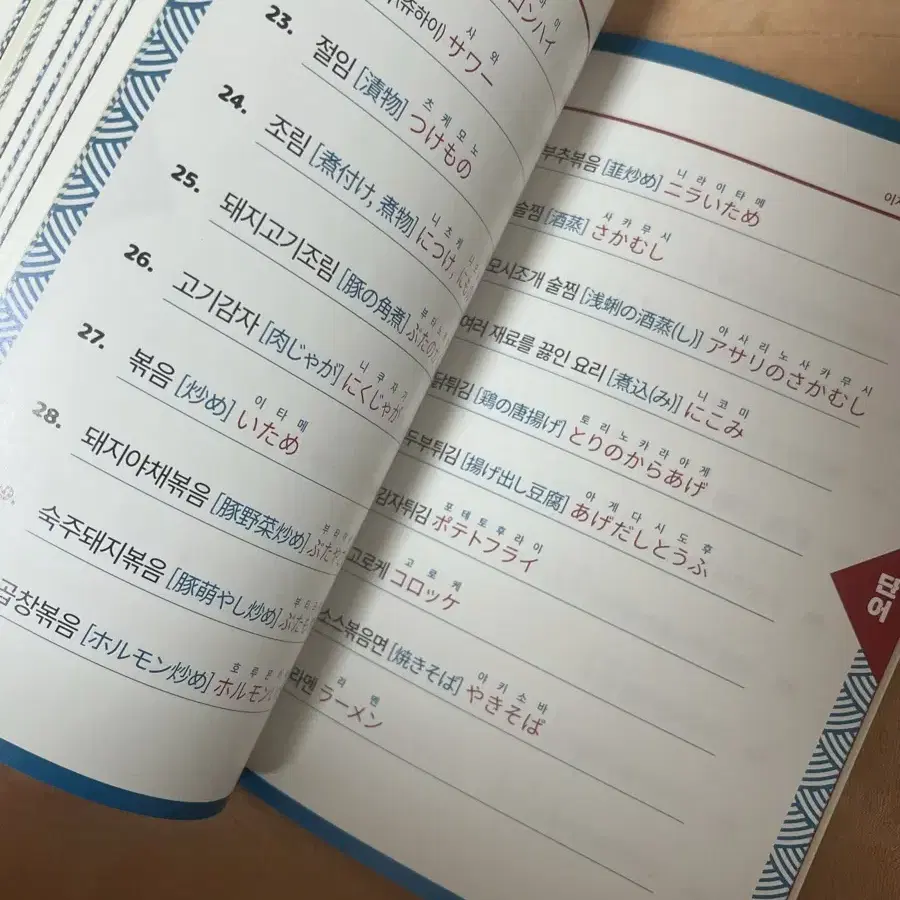 ロンハイ
(쥬하이) サワー
사 와
23. 절임 [漬物] つけもの
츠 케 모 노
24. 조림 [煮付け, 煮物] につけ,
니 츠 케
25. 돼지고기조림 [豚の角煮] ぶたの
26. 고기감자 [肉じゃが] にくじゃが
니 쿠 쟈 가
27. 볶음 [炒め] いため
이 타 메
28. 돼지야채볶음 [豚野菜炒め]
숙주돼지볶음 [豚萌やし炒め]
곱창볶음 [ホルモン炒め] ホルモン
호 루 몬
부추볶음 [韮炒め] ニラいため
니 라 이 타 메
술찜 [酒蒸] さかむし
사 카 무 시
모시조개 술찜 [浅蜊の酒蒸(し)] アサリのさかむし
아 사 리 노 사 카 무 시
여러 재료를 끓인 요리 [煮込(み)] にこみ
니 코 미
닭튀김 [鶏の唐揚げ] とりのからあげ
토 리 노 카 라 아 게
두부튀김 [揚げ出し豆腐] あげだしとうふ
아 게 다 시 도 후
감자튀김 ポテトフライ
포 테 토 후 라 이
고로케 コロッケ
고 로 케
소스볶음면 [焼きそば] やきそば
야 키 소 바
라멘 ラーメン
라 멘
단어